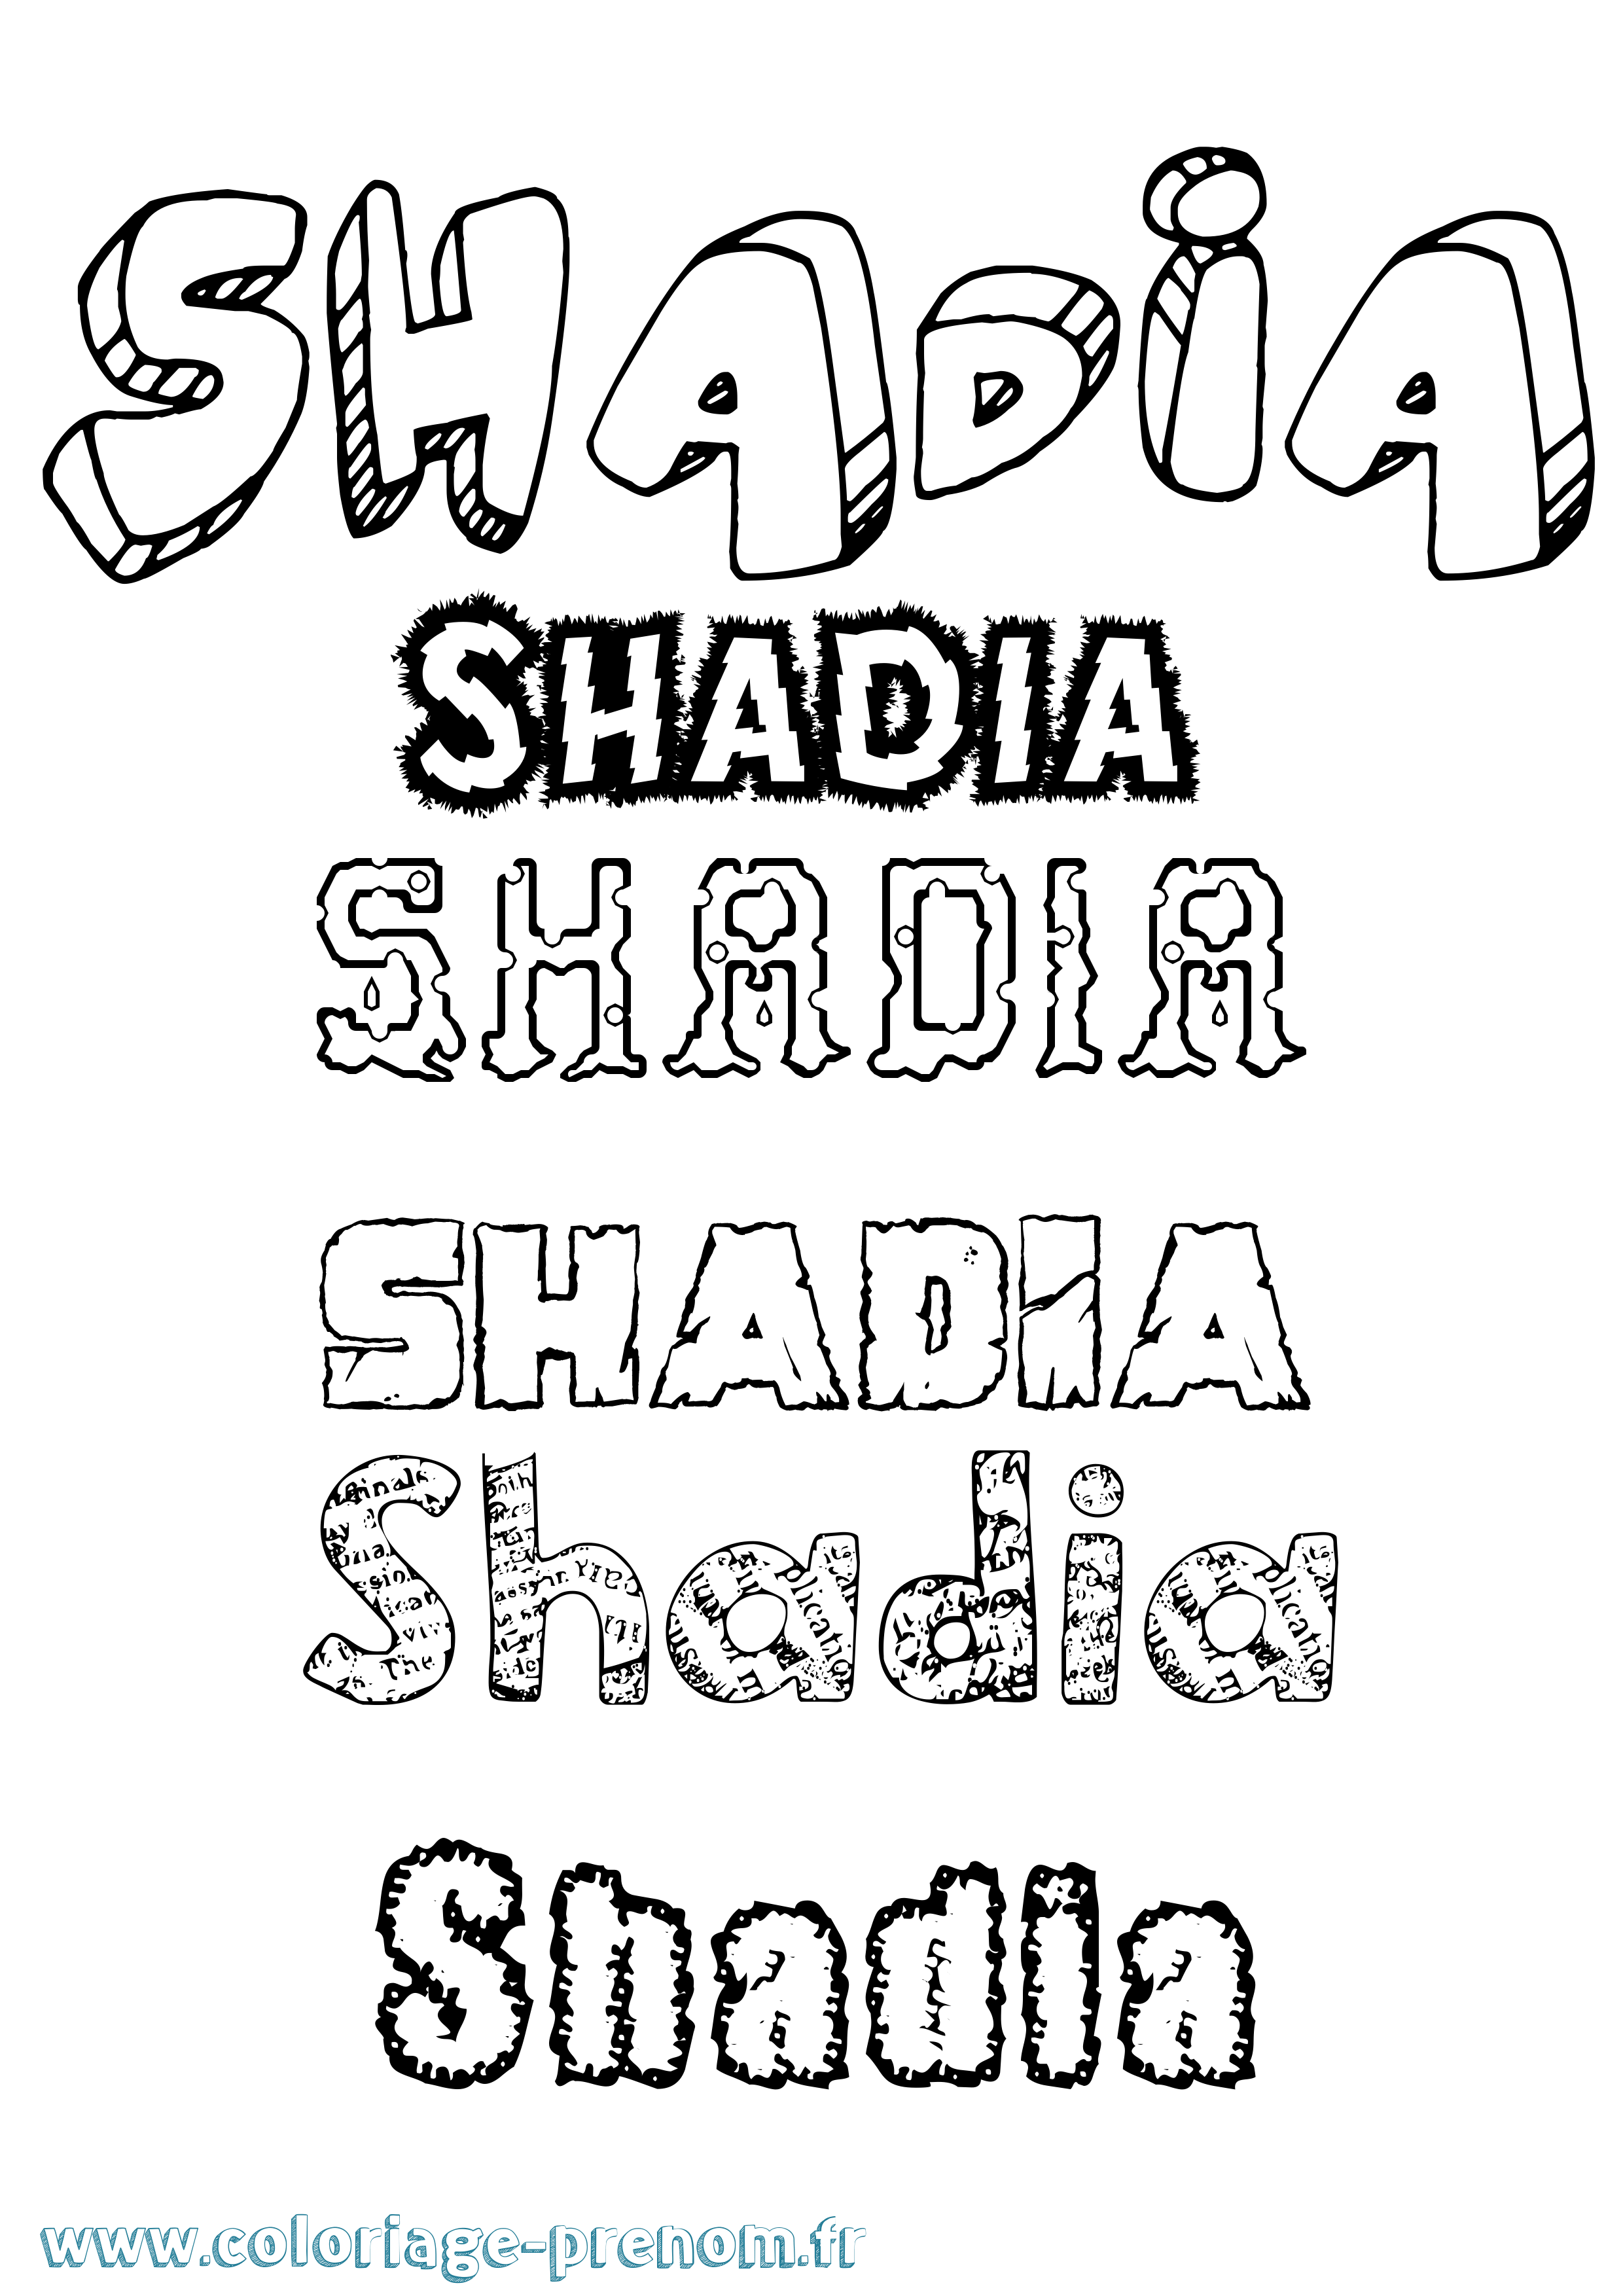 SHADiA
SHADIA
SHADIA
SHADiA
Shadia
Shadia
www.coloriage-prenom.fr